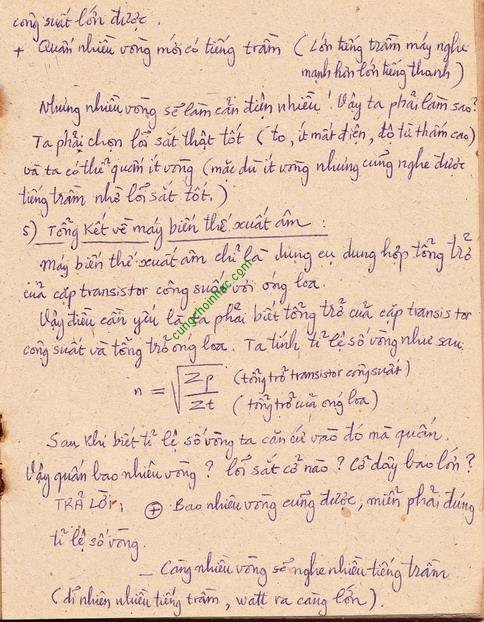 công suất lớn được.
+ Quấn nhiều vòng mới có tiếng trầm (Lớn tiếng trầm máy nghe
mạnh hơn lớn tiếng thanh)
Nhưng nhiều vòng sẽ làm cản điện nhiều! Vậy ta phải làm sao?
Ta phải chọn lõi sắt thật tốt (to, ít mất điện, độ từ thấm cao)
và ta có thể quấn ít vòng (mặc dù ít vòng nhưng cũng nghe được
tiếng trầm nhờ lõi sắt tốt.)
5) Tổng kết về máy biến thế xuất âm:
Máy biến thế xuất âm chỉ là dụng cụ dung hợp tổng trở
của cặp transistor công suất với ống loa.
Vậy điều cần yếu là ta phải biết tổng trở của cặp transistor
công suất và tổng trở ống loa. Ta tính tỉ lệ số vòng như sau:
n = √(Zp/Zt) (tổng trở transistor công suất)
(tổng trở của ống loa)
Sau khi biết tỉ lệ số vòng ta căn cứ vào đó mà quấn.
Vậy quấn bao nhiêu vòng? lõi sắt cỡ nào? Cỡ dây bao lớn?
TRẢ LỜI: ⊕ Bao nhiêu vòng cũng được, miễn phải đúng
tỉ lệ số vòng.
_ Càng nhiều vòng sẽ nghe nhiều tiếng trầm
(dĩ nhiên nhiều tiếng trầm, watt ra càng lớn).
cungchoinhac.com